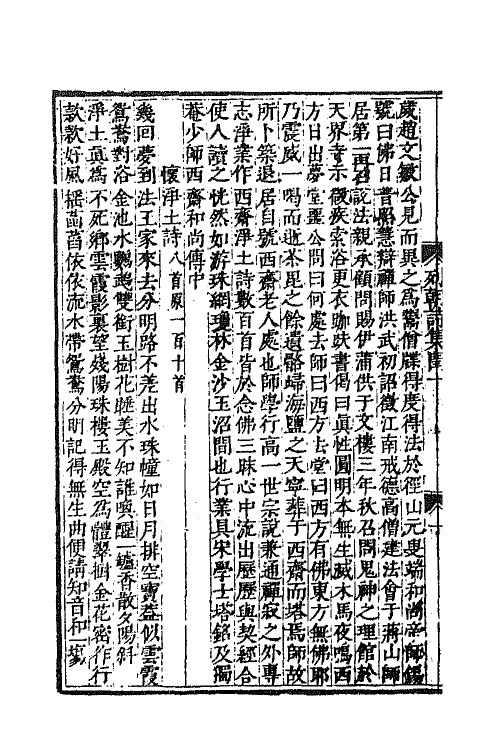 歲趙文敏公見而異之為鬻僧牒得度得法於徑山元叟端和尚帝師錫
號曰佛日普照慧辯禪師洪武初詔徵江南戒德高僧建法會于蔣山師
居第一再召說法親承顧問賜伊蒲供于文樓三年秋召問鬼神之理館於
天界寺示微疾索浴更衣趺書偈曰真性圓明本無生滅木馬夜鳴西
方日出夢堂噩公問曰何處去師曰西方去堂曰西方有佛東方無佛耶
乃震威一喝而逝茶毘之餘遺骼歸海鹽之天寧葬于西齋而塔焉師故
所卜築退居自號西齋老人處也師學行高一世宗說兼通禪寂之外專
志淨業作西齋淨土詩數百首皆於念佛三昧心中流出歷歷與契經合
使人讀之恍然如游珠網瓊林金沙玉沼間也行業具宋學士塔銘及獨
菴少師西齋和尚傳中
懷淨土詩八首原一百十首
幾回夢到法王家來去分明路不差出水珠幢如日月排空寶蓋似雲霞
鴛鴦對浴金池水鸚鵡雙銜玉樹花睡美不知誰喚醒一爐香散夕陽斜
淨土真為不死鄉雲霞影裏望殘陽珠樓玉殿空為體翠樹金花密作行
款款好風搖菡萏依依流水帶鴛鴦分明記得無生曲便請知音和一塲
列朝詩集閏一